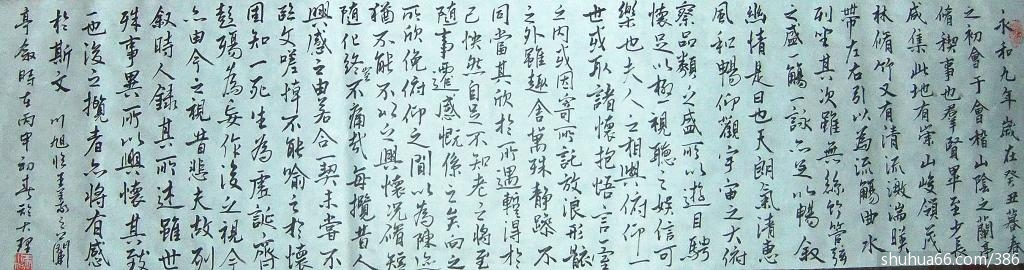 永和九年歲在癸丑暮春
之初會于會稽山陰之蘭亭
脩稧事也羣賢畢至少長
咸集此地有崇山峻領茂
林脩竹又有清流激湍暎
帶左右引以為流觴曲水
列坐其次雖無絲竹管弦
之盛觴一詠亦足以暢叙
幽情是日也天朗氣清惠
風和暢仰觀宇宙之大俯
察品類之盛所以遊目騁
懷足以極視聽之娛信可
樂也夫人之相與俯仰一
世或取諸懷抱悟言一室
之內或因寄所託放浪形骸
之外雖趣舍萬殊靜躁不
同當其欣於所遇輕得於
己怏然自足不知老之將至
隨事遷感慨係之矣向之
所欣俛俯仰之間以為陳迹
猶不能不以之興懷況脩短
隨化終不痛哉每攬昔人
興感之由若合一契未嘗不
臨文嗟悼不能喻之於懷
固知一死生為虛誕齊
彭殤為妄作後之視今
亦由今之視昔悲夫故列
叙時人錄其所述雖世
殊事異所以興懷其致
一也後之攬者亦將有感
於斯文 川旭臨王羲之蘭
亭叙時在丙申初春於大理
shuhua66.com/386